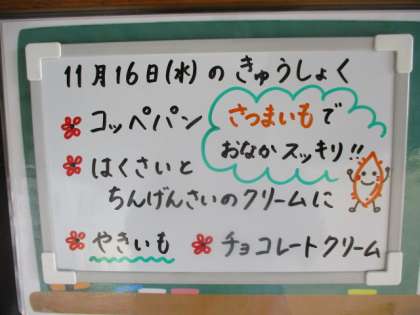 11月16日(水)のきゅうしょく
コッペパン
さつまいもで
おなかスッキリ!!
はくさいと
ちんげんさいのクリームに
やきいも
チョコレートクリーム